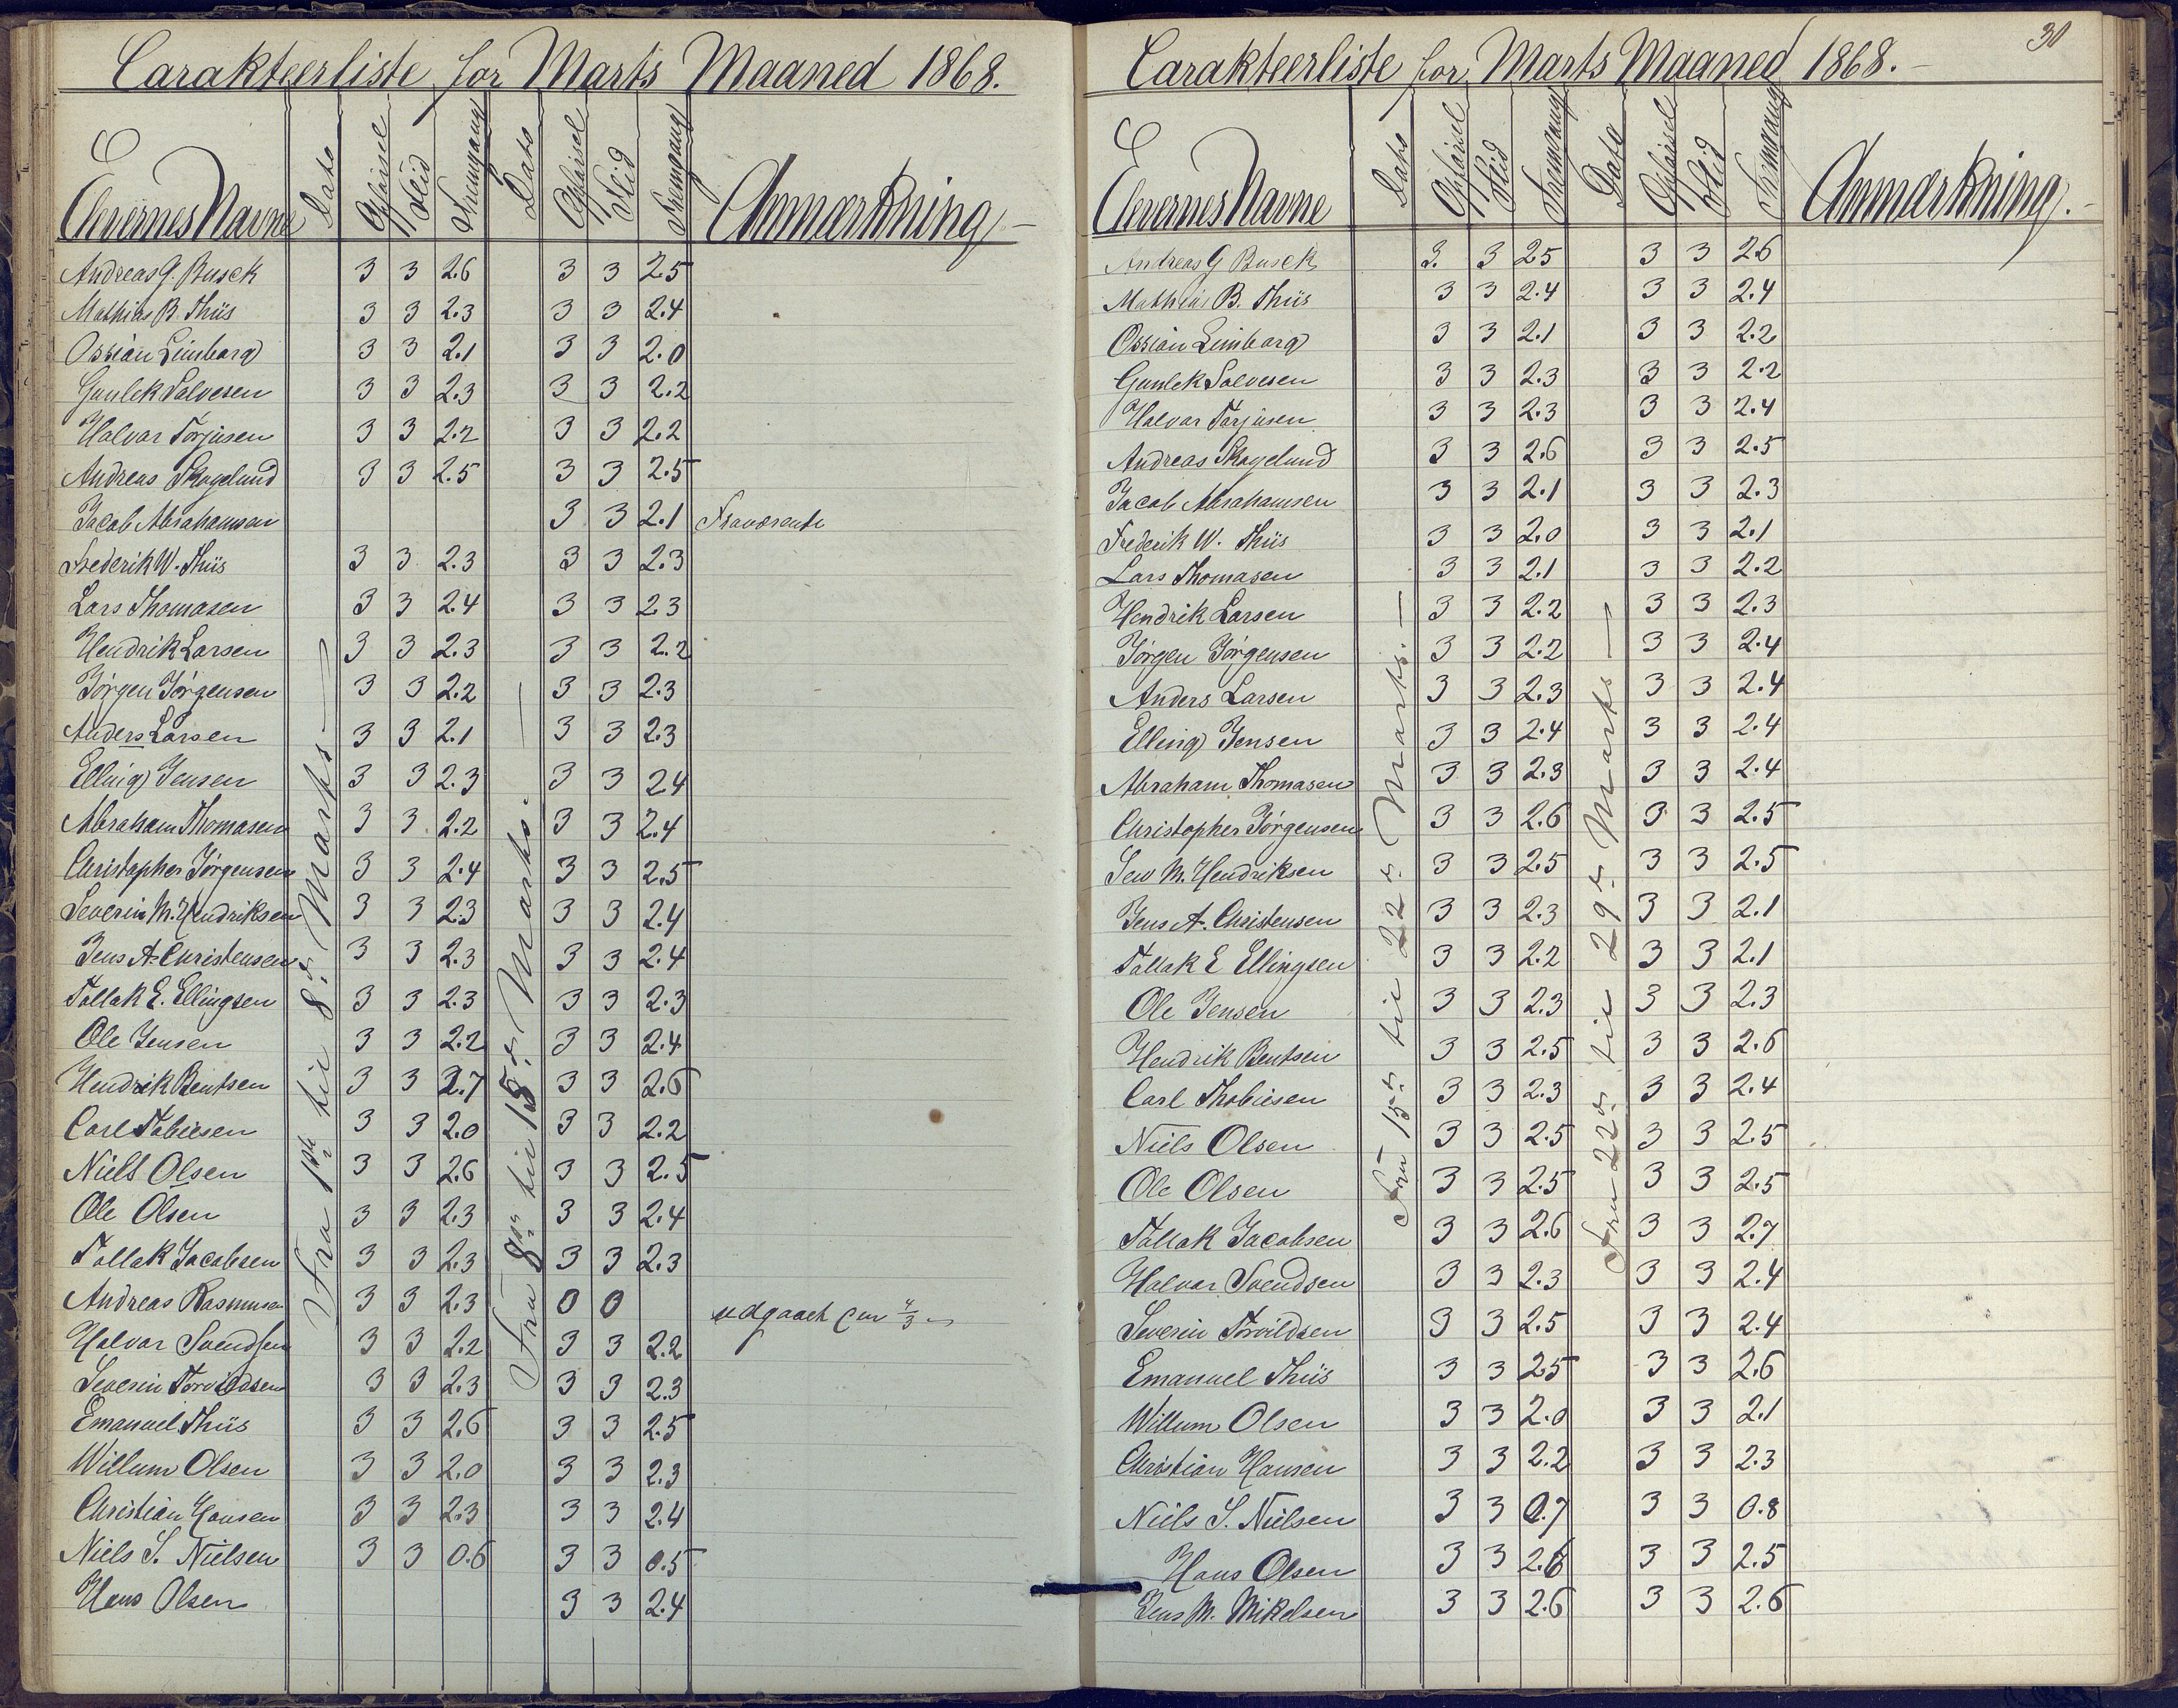 Carakteerliste for Marts Maaned 1868.
Elevernes Navne Dato Opførsel Flid Fremgang Dato Opførsel Flid Fremgang Anmærkning
Fra 1ste til 8de Marts
Fra 8de til 15de Marts.
Andreas G. Busck 3 3 2.6 3 3 2.5
Mathias B. Thiis 3 3 2.3 3 3 2.4
Ossian Limborg 3 3 2.1 3 3 2.0
Gunlek Salvesen 3 3 2.3 3 3 2.2
Halvor Torjusen 3 3 2.2 3 3 2.2
Andreas Skogelund 3 3 2.5 3 3 2.5
Jacob Abrahamsen 3 3 2.1 Fraværende
Frederik W. Thiis 3 3 2.3 3 3 2.3
Lars Thomasen 3 3 2.4 3 3 2.3
Hendrik Larsen 3 3 2.3 3 3 2.2
Jørgen Jørgensen 3 3 2.2 3 3 2.3
Anders Larsen 3 3 2.1 3 3 2.3
Elling Jensen 3 3 2.3 3 3 2.4
Abraham Thomasen 3 3 2.2 3 3 2.4
Christopher Jørgensen 3 3 2.4 3 3 2.5
Severin M. Hendriksen 3 3 2.3 3 3 2.4
Jens A. Christensen 3 3 2.3 3 3 2.4
Tallak E. Ellingsen 3 3 2.3 3 3 2.3
Ole Jensen 3 3 2.2 3 3 2.4
Hendrik Bentsen 3 3 2.7 3 3 2.6
Carl Tobiesen 3 3 2.0 3 3 2.2
Niels Olsen 3 3 2.6 3 3 2.5
Ole Olsen 3 3 2.3 3 3 2.4
Tallak Jacobsen 3 3 2.3 3 3 2.3
Andreas Rasmusen 3 3 2.3 0 0 udgaaet den 4/3
Halvor Svendsen 3 3 2.2 3 3 2.2
Severin Torvildsen 3 3 2.3 3 3 2.3
Emanuel Thiis 3 3 2.6 3 3 2.5
Willum Olsen 3 3 2.0 3 3 2.3
Christian Hansen 3 3 2.3 3 3 2.4
Niels S. Nielsen 3 3 0.6 3 3 0.5
Hans Olsen 3 3 2.4
30
Carakteerliste for Marts Maaned 1868.
Elevernes Navne Dato Opførsel Flid Fremgang Dato Opførsel Flid Fremgang Anmærkning.
Fra 15de til 22de Marts.
Fra 22de til 29de Marts
Andreas G Busck 3. 3 2.5 3 3 2.6
Mathias B. Thiis 3 3 2.4 3 3 2.4
Ossian Limborg 3 3 2.1 3 3 2.2
Gunlek Salvesen 3 3 2.3 3 3 2.2
Halvor Torjusen 3 3 2.3 3 3 2.4
Andreas Skogelund 3 3 2.6 3 3 2.5
Jacob Abrahamsen 3 3 2.1 3 3 2.3
Frederik W. Thiis 3 3 2.0 3 3 2.1
Lars Thomasen 3 3 2.1 3 3 2.2
Hendrik Larsen 3 3 2.2 3 3 2.3
Jørgen Jørgensen 3 3 2.2 3 3 2.4
Anders Larsen 3 3 2.3 3 3 2.4
Elling Jensen 3 3 2.4 3 3 2.4
Abraham Thomasen 3 3 2.3 3 3 2.4
Christopher Jørgensen 3 3 2.6 3 3 2.5
Sev M. Hendriksen 3 3 2.5 3 3 2.5
Jens A. Christensen 3 3 2.3 3 3 2.1
Tallak E Ellingsen 3 3 2.2 3 3 2.1
Ole Jensen 3 3 2.3 3 3 2.3
Hendrik Bentsen 3 3 2.5 3 3 2.6
Carl Thobiesen 3 3 2.3 3 3 2.4
Niels Olsen 3 3 2.5 3 3 2.5
Ole Olsen 3 3 2.5 3 3 2.5
Tallak Jacobsen 3 3 2.6 3 3 2.7
Halvor Svendsen 3 3 2.3 3 3 2.4
Severin Torvildsen 3 3 2.5 3 3 2.4
Emanuel Thiis 3 3 2.5 3 3 2.6
Willum Olsen 3 3 2.0 3 3 2.1
Christian Hansen 3 3 2.2 3 3 2.3
Niels S. Nielsen 3 3 0.7 3 3 0.8
Hans Olsen 3 3 2.6 3 3 2.5
Jens M. Mikelsen 3 3 2.6 3 3 2.6